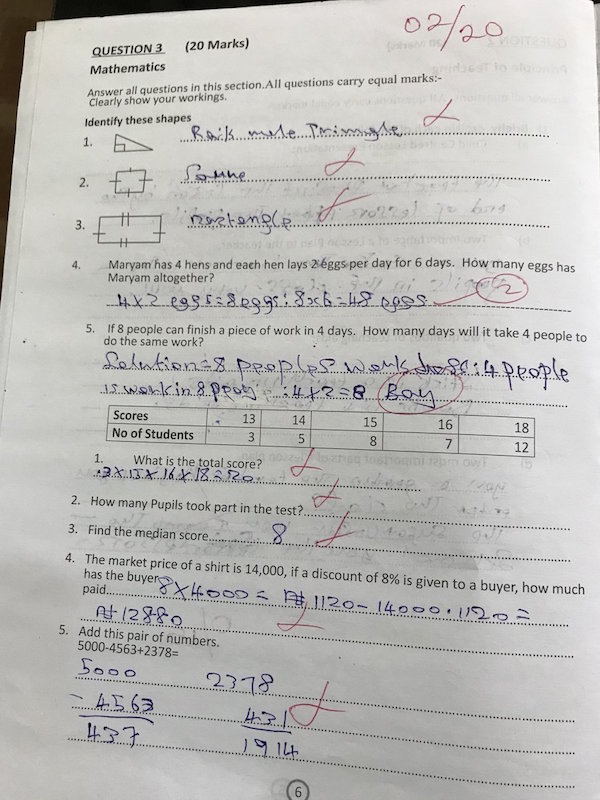 02/20
QUESTION 3 (20 Marks)
Mathematics
Answer all questions in this section.All questions carry equal marks:-
Clearly show your workings.
Identify these shapes
1. Triangle
2.
3. rectangle
4. Maryam has 4 hens and each hen lays 2 eggs per day for 6 days. How many eggs has
Maryam altogether?
4x2 eggs = 8 eggs : 8x6 = 48 eggs 2
5. If 8 people can finish a piece of work in 4 days. How many days will it take 4 people to
do the same work?
Solution = 8 peoples work days : 4 people
is work in 8 : 4x2=8 Bay
Scores 13 14 15 16 18
No of Students 3 5 8 7 12
1. What is the total score?
2. How many Pupils took part in the test?
3. Find the median score 8
4. The market price of a shirt is 14,000, if a discount of 8% is given to a buyer, how much
has the buyer 8X4000 = ₦1120-14000.1120 =
paid
₦12880
5. Add this pair of numbers.
5000-4563+2378=
5000 2378
- 4563 431
437 1914
6